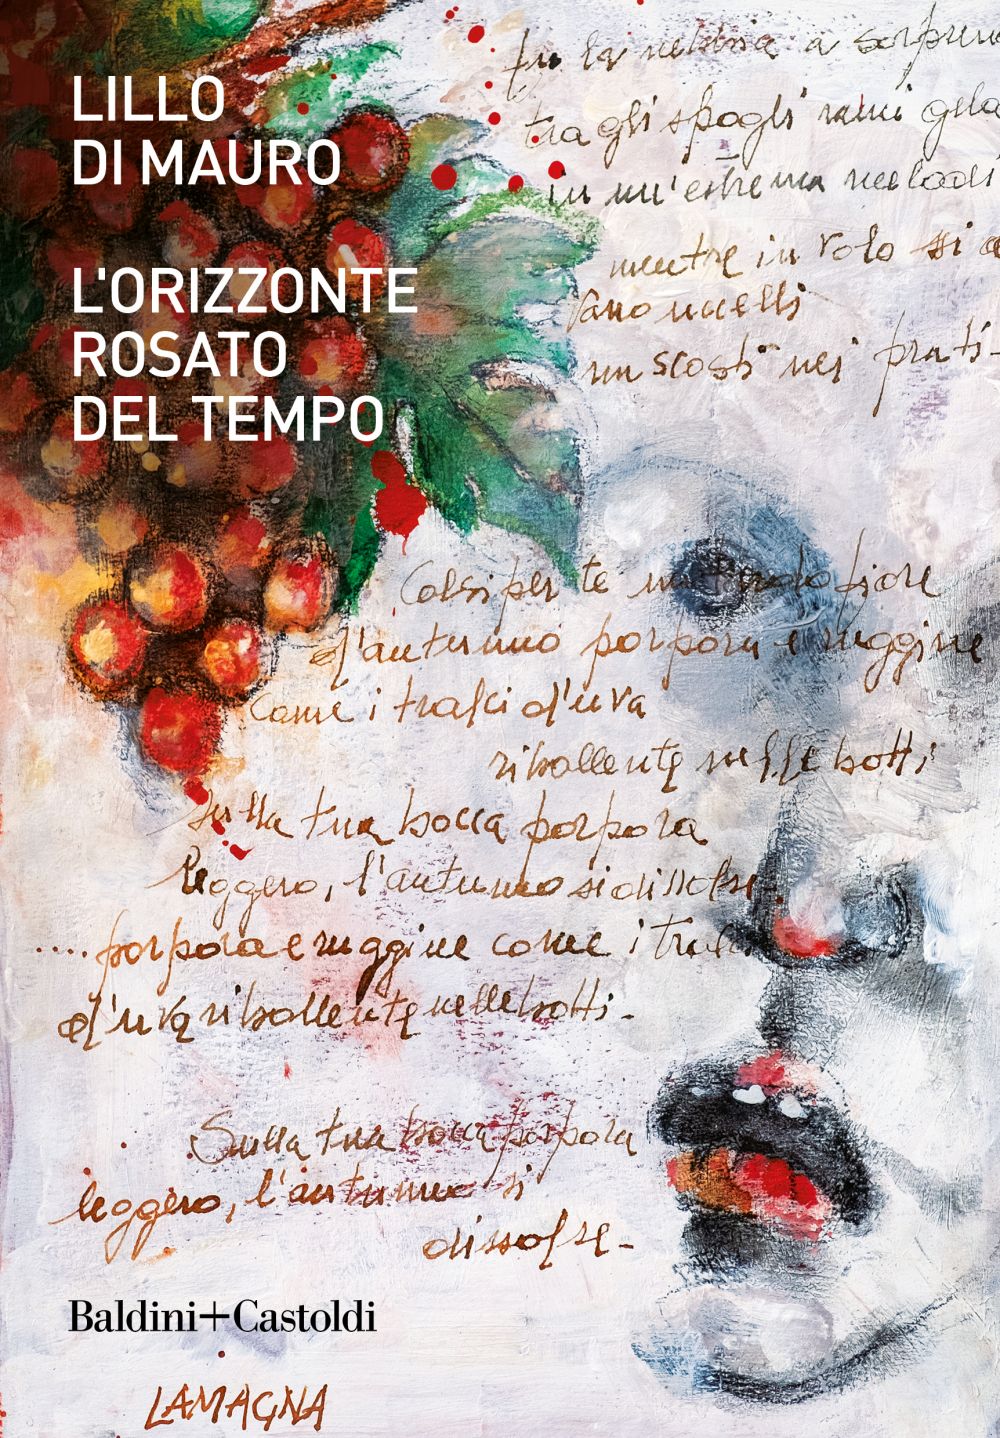 LILLO
DI MAURO
L'ORIZZONTE
ROSATO
DEL TEMPO
fu la nebbia a
tra gli spogli rami
in un'estrema
mentre in volo si
vano uccelli
nei prati-
Colsi per te un fiore
d'autunno porpora e ruggine
Come i tralci d'uva
ribollente nelle botti
sulla tua bocca porpora
leggero, l'autunno si dissolse-
.... porpora e ruggine come i
d'uva ribollente nelle botti-
Sulla tua bocca porpora
leggero, l'autunno si
dissolse-
Baldini+Castoldi
LAMAGNA